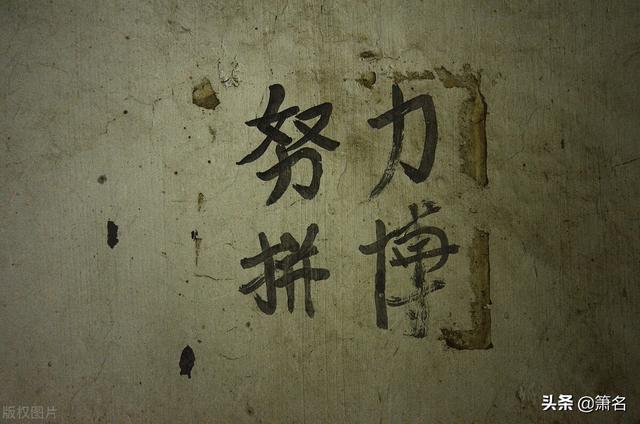 努力
拼博
版权图片
头条 @箫名